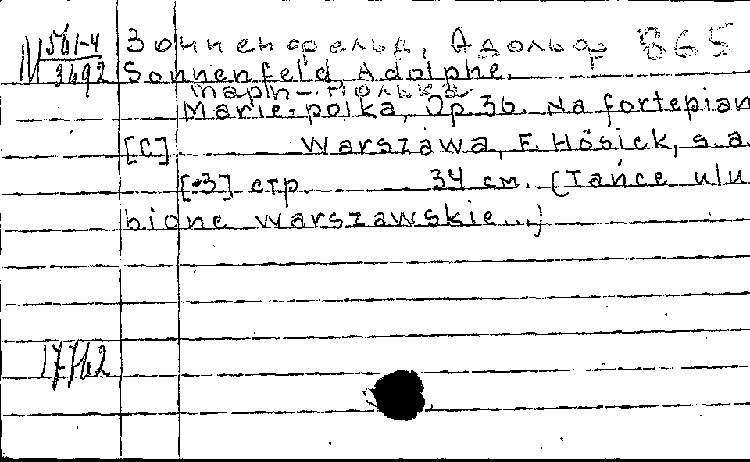 М 561-4 Зонненфельд, Адольф 865
3692 Sonnenfeld, Adolphe.
Мари-полька
Marie-polka, Op. 36. Na fortepian
[C] Warszawa, F. Hösick, s.a.
[-3] стр. 34 см. (Tańce ulu
bione warszawskie...)
17762